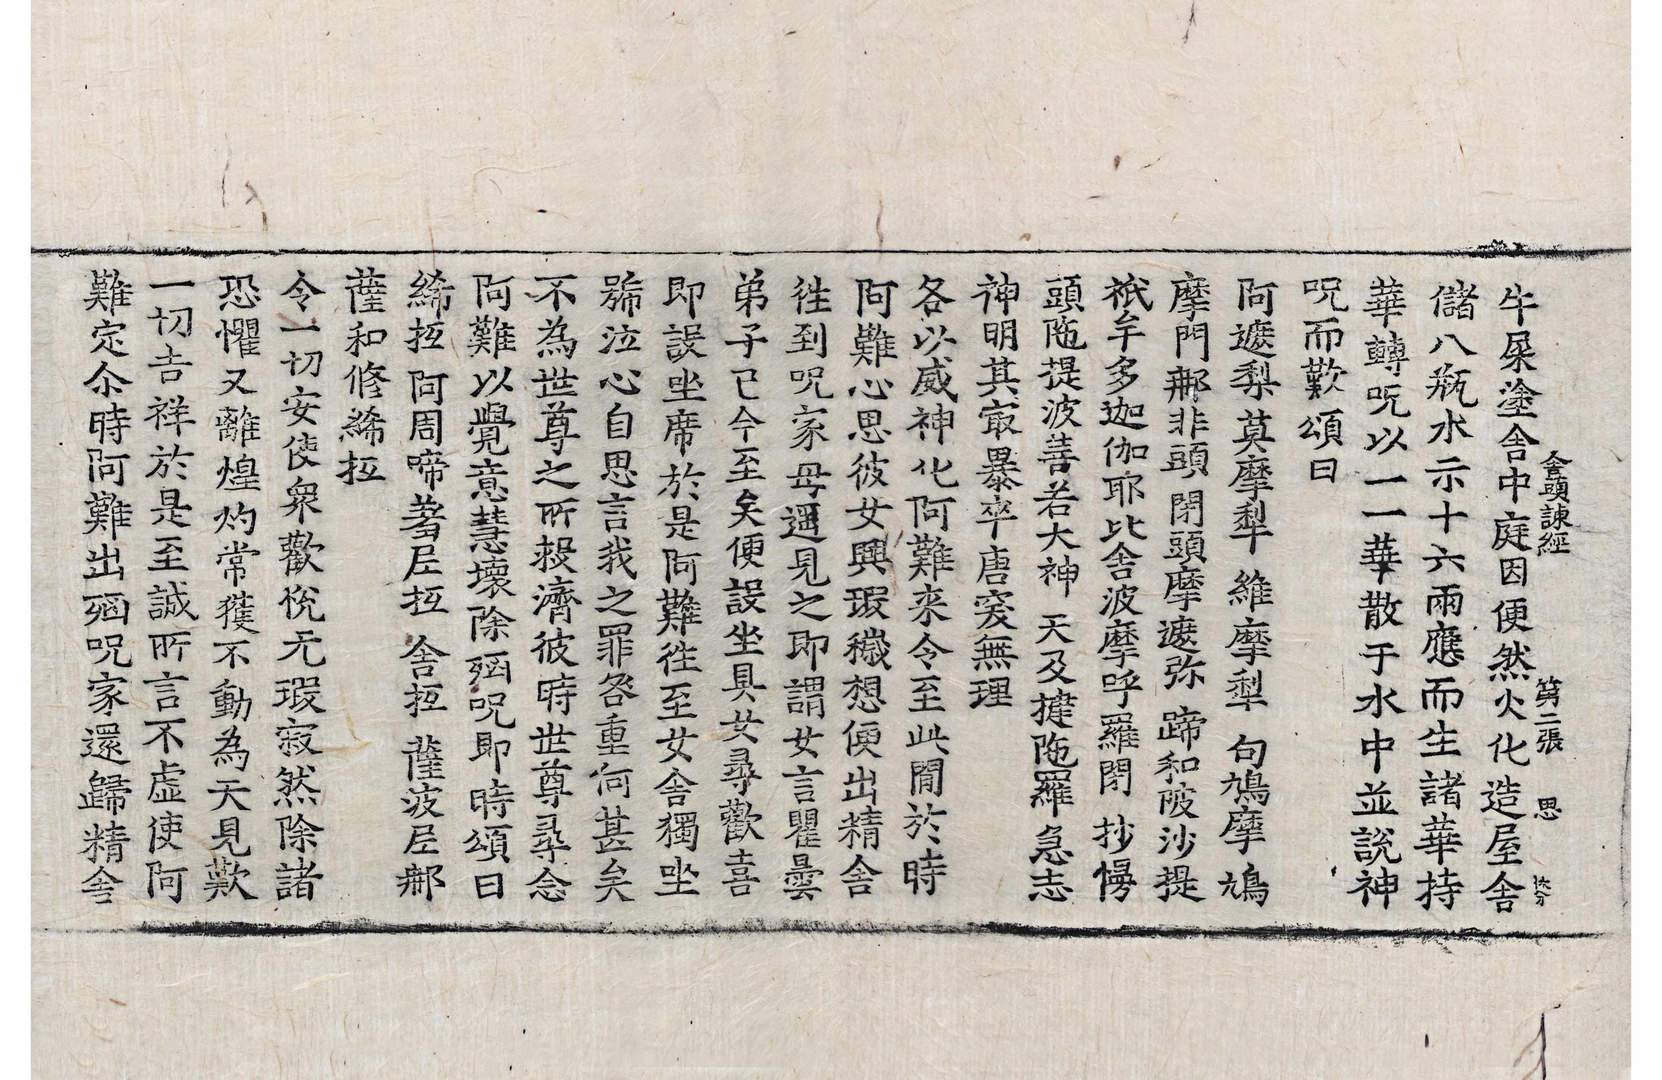 舍頭諫經 第二張 思
牛屎塗舍中庭因便然火化造屋舍
儲八瓶水示十六兩應而生諸華持
華轉呪以一一華散于水中並說神
呪而歎頌曰
阿遬犁 莫摩犁 維摩犁 句鳩摩 鳩
摩門 那非頭 閉頭摩 遬弥 蹄和陂沙提
祇牟多迦 伽耶 比舍波摩呼羅閉 抄慢
頭陁提波 善若大神 天及揵陁羅急志
神明其冣暴卒唐突無理
各以威神化阿難来令至此閒於時
阿難心思彼女興瑕穢想便出精舍
徃到呪家母遥見之即謂女言瞿曇
弟子已今至矣便設坐具女尋歡喜
即設坐席於是阿難徃至女舍獨坐
號泣心自思言我之罪咎重何甚矣
不為世尊之所救濟彼時世尊尋念
阿難以覺意慧壞除㓙呪即時頌曰
絺拞 阿周啼 蓍𡰱拞 舍拞 薩波𡰱那
薩和修絺拞
令一切安使衆歡恱无瑕寂然除諸
恐懼又離煌灼常獲不動為天見歎
一切吉祥於是至誠所言不虛使阿
難定尒時阿難出㓙呪家還歸精舍